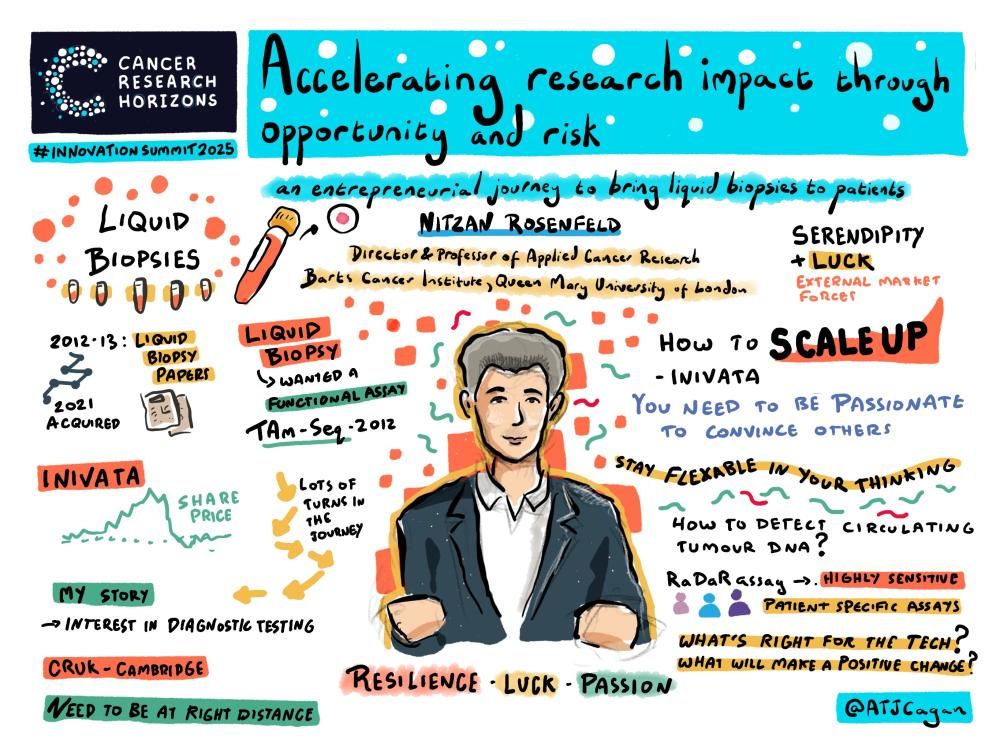 CANCER
RESEARCH
HORIZONS
#INNOVATIONSUMMIT2025
Accelerating research impact through
opportunity and risk
an entrepreneurial journey to bring liquid biopsies to patients
NITZAN ROSENFELD
Director & Professor of Applied Cancer Research
Barts Cancer Institute, Queen Mary University of London
LIQUID
BIOPSIES
SERENDIPITY
+ LUCK
EXTERNAL MARKET
FORCES
2012-13: LIQUID
BIOPSY
PAPERS
2021
ACQUIRED
LIQUID
BIOPSY
↳ WANTED A
FUNCTIONAL ASSAY
TAm-Seq-2012
HOW TO SCALE UP
- INIVATA
YOU NEED TO BE PASSIONATE
TO CONVINCE OTHERS
STAY FLEXABLE IN YOUR THINKING
INIVATA
SHARE
PRICE
LOTS OF
TURNS IN
THE
JOURNEY
HOW TO DETECT CIRCULATING
TUMOUR DNA?
RaDaR assay → HIGHLY SENSITIVE
PATIENT SPECIFIC ASSAYS
MY STORY
→ INTEREST IN DIAGNOSTIC TESTING
CRUK - CAMBRIDGE
NEED TO BE AT RIGHT DISTANCE
WHAT'S RIGHT FOR THE TECH?
WHAT WILL MAKE A POSITIVE CHANGE?
RESILIENCE · LUCK · PASSION
@ATJCagan